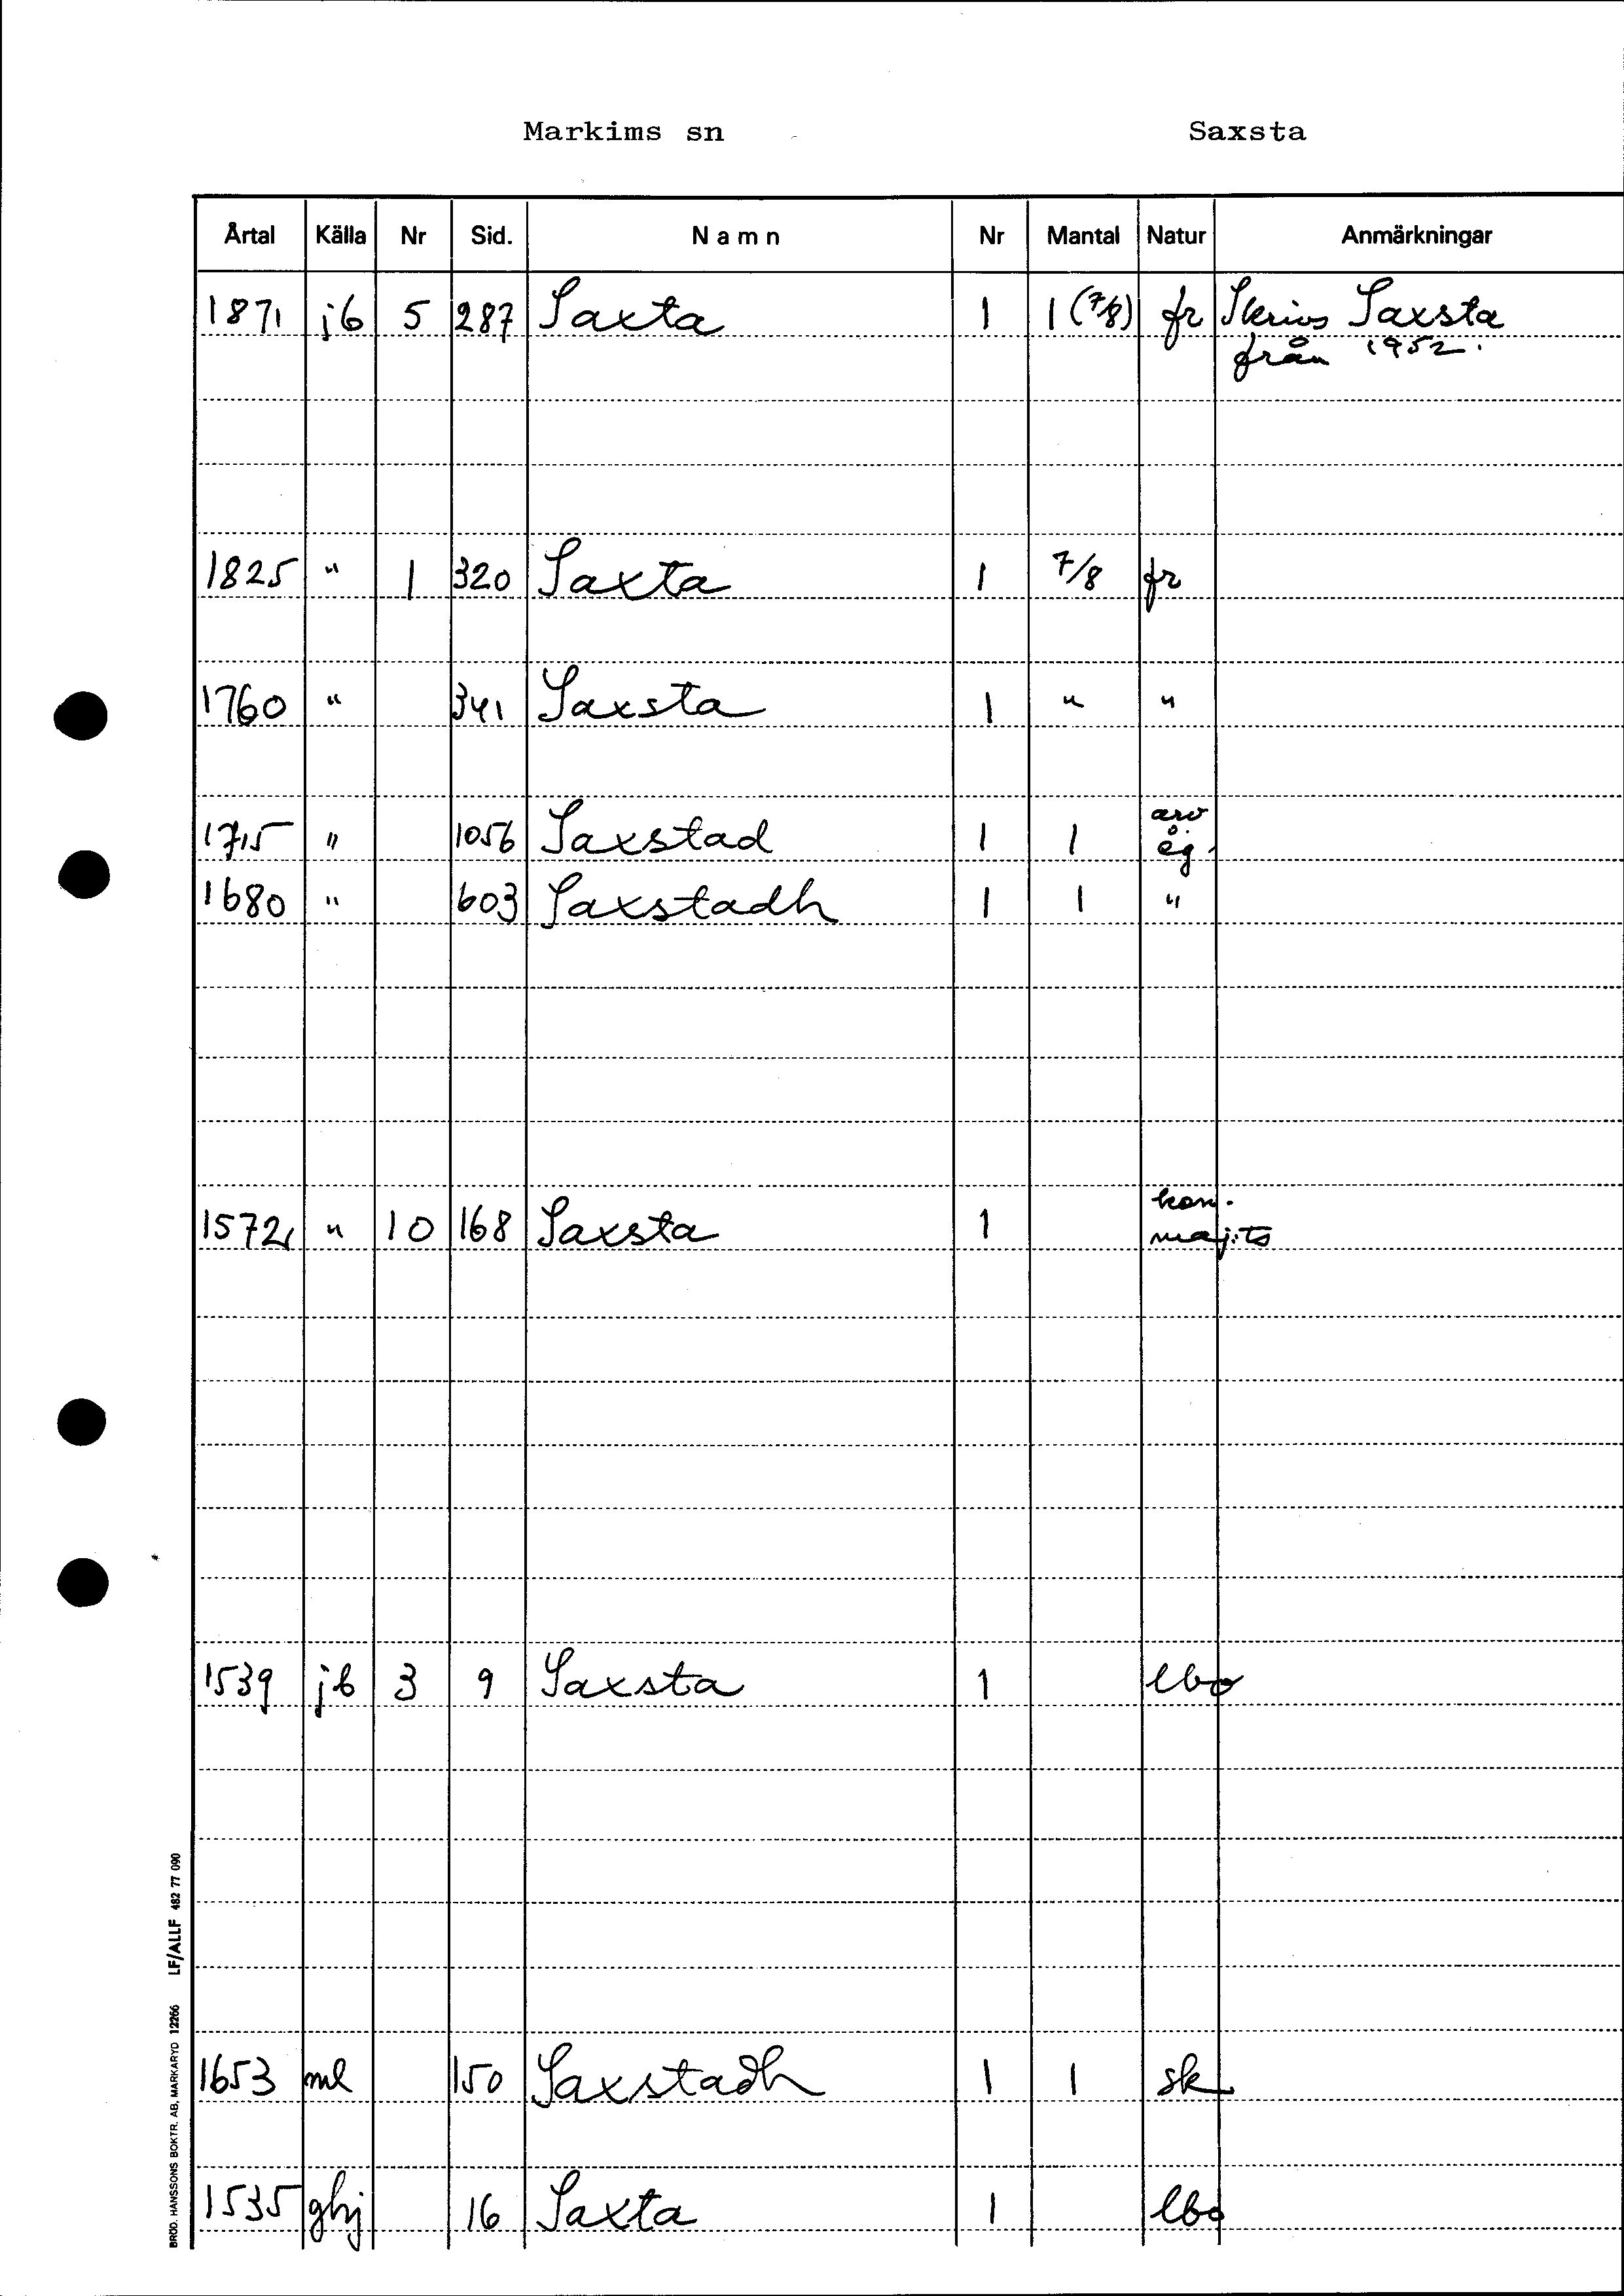 Markims sn Saxsta
Årtal Källa Nr Sid. Namn Nr Mantal Natur Anmärkningar
1871 jb 5 287 Saxta 1 1 (7/8) fr Skrivs Saxsta
från 1952.
1825 " 1 320 Saxta 1 7/8 fr
1760 " 341 Saxsta 1 " "
arv
1715 " 1056 Saxstad 1 1 eg.
1680 " 603 Saxstadh 1 1 "
kon.
1572 " 10 168 Saxsta 1 maj:ts
1539 jb 3 9 Saxsta 1 lbo
1653 ml 150 Saxstadh 1 1 sk
1535 ghj 16 Saxta 1 lbo
BRÖD. HANSSONS BOKTR. AB, MARKARYD 12266 LF/ALLF 482 77 090